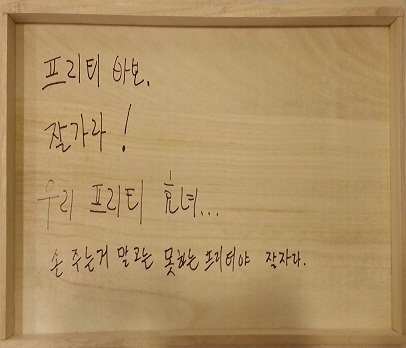 프리티 바보.
잘가라!
우리 프리티 효녀...
손 주는거 말고는 못하는 프리티야 잘자라.